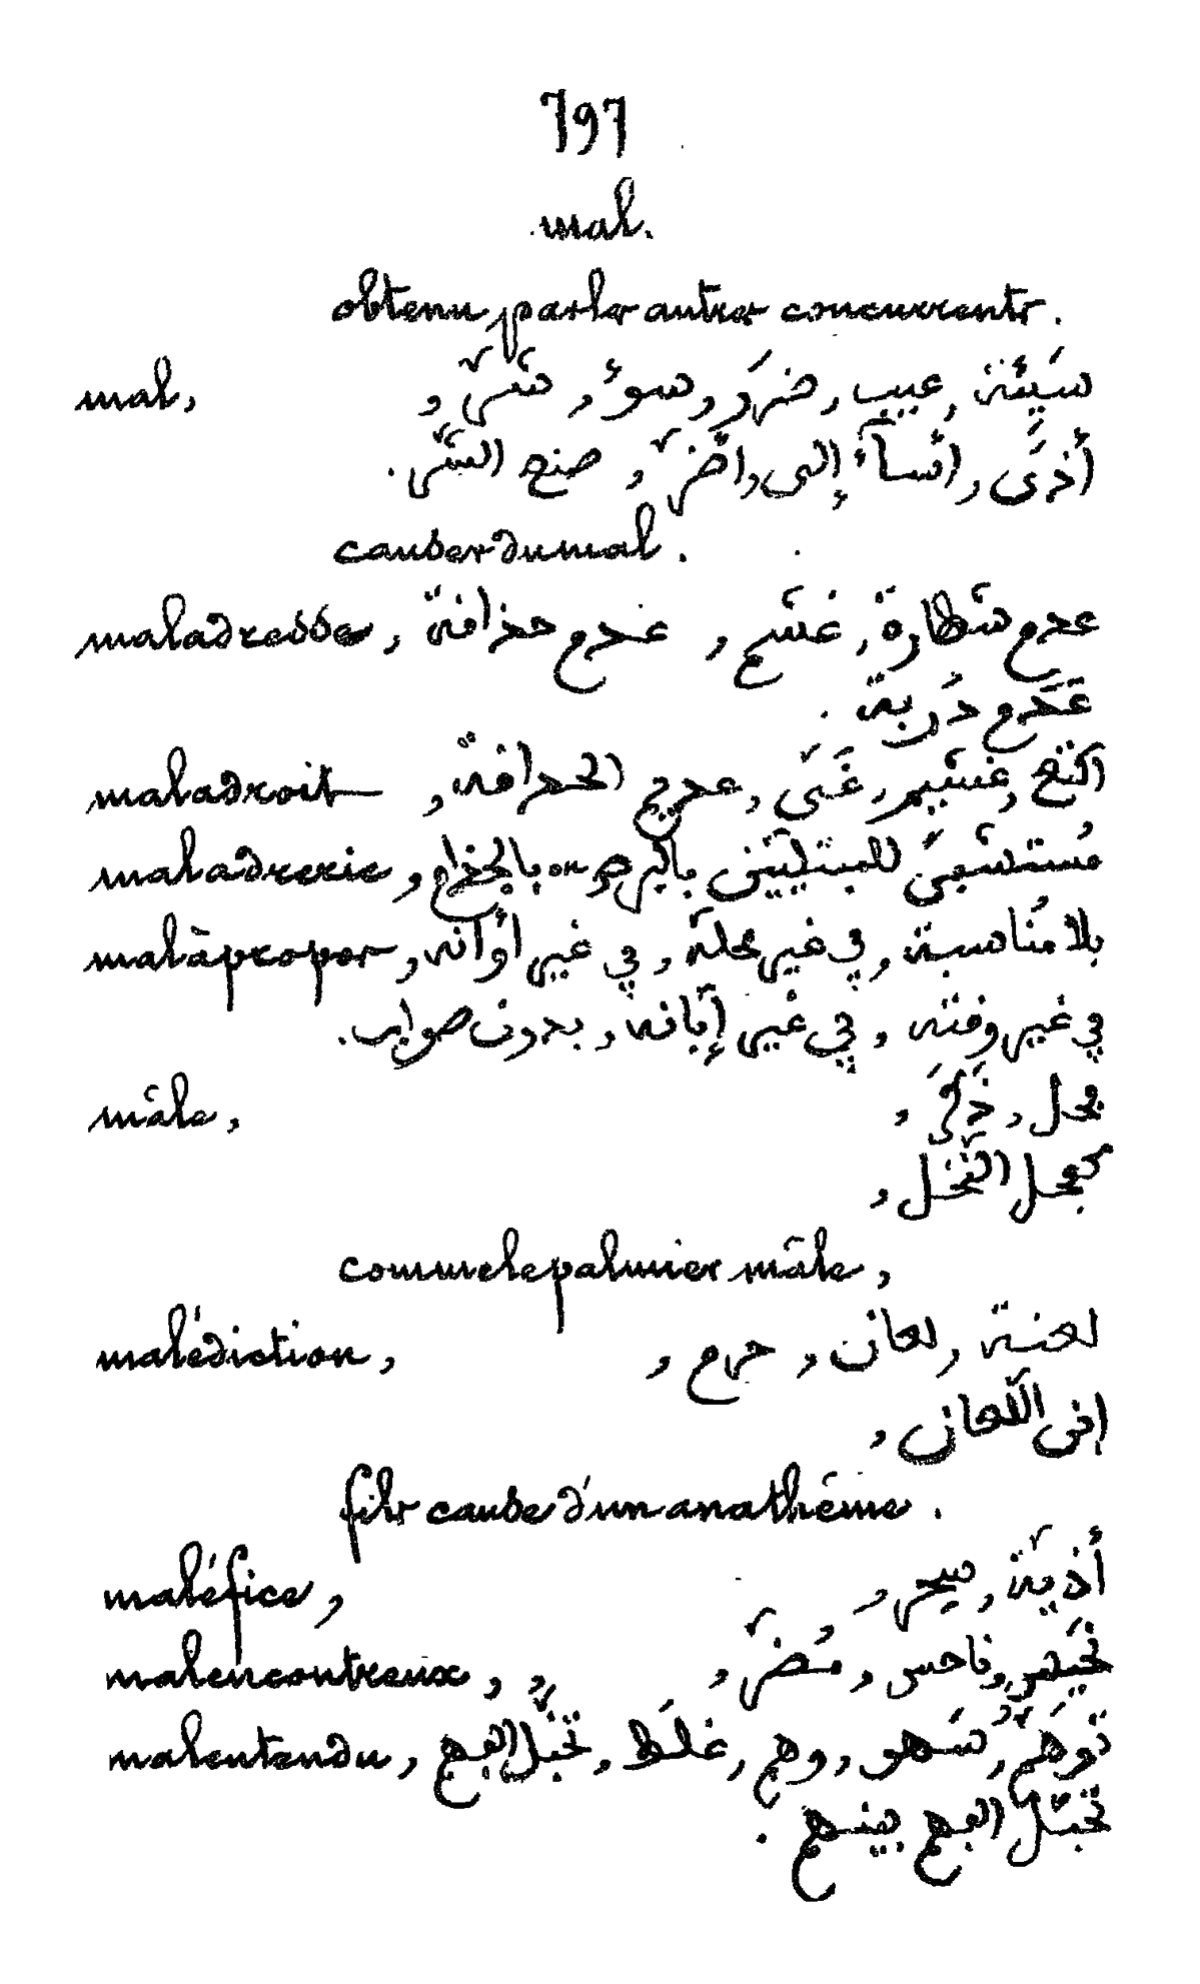 797
mal.
obtenu par les autres concurrents.
mal, سَيِّئة, عيب, ضرَر, سوء, شرّ,
أذىً, أسآء إلى, أضرّ, صنع الشّر.
causer du mal.
maladresse, عدم شطارة, غشم, عدم حذاقة,
عَدَم دُربة.
maladroit, غشيم, غَبى, عديم الحذاقة,
maladrerie, مُستشفىً للمبتليين بالبرص ou بالجذام,
mal à propos, بلا مُناسبة, في غير محله, في غير أوانه,
في غير وقته, في غير إبّانه, بدون صواب.
mâle, فحل, ذَكَر,
كفحل النّخل,
comme le palmier mâle,
malédiction, لعنة, لعان, حرم,
إبن اللّعان,
fils cause d'un anathème.
maléfice, أذيّة, سحر,
malencontreux, ناحس, مُضرّ,
malentendu, توَهُّم, سَهو, وهم, غلَط, الفهم,
الفهم بينهم.